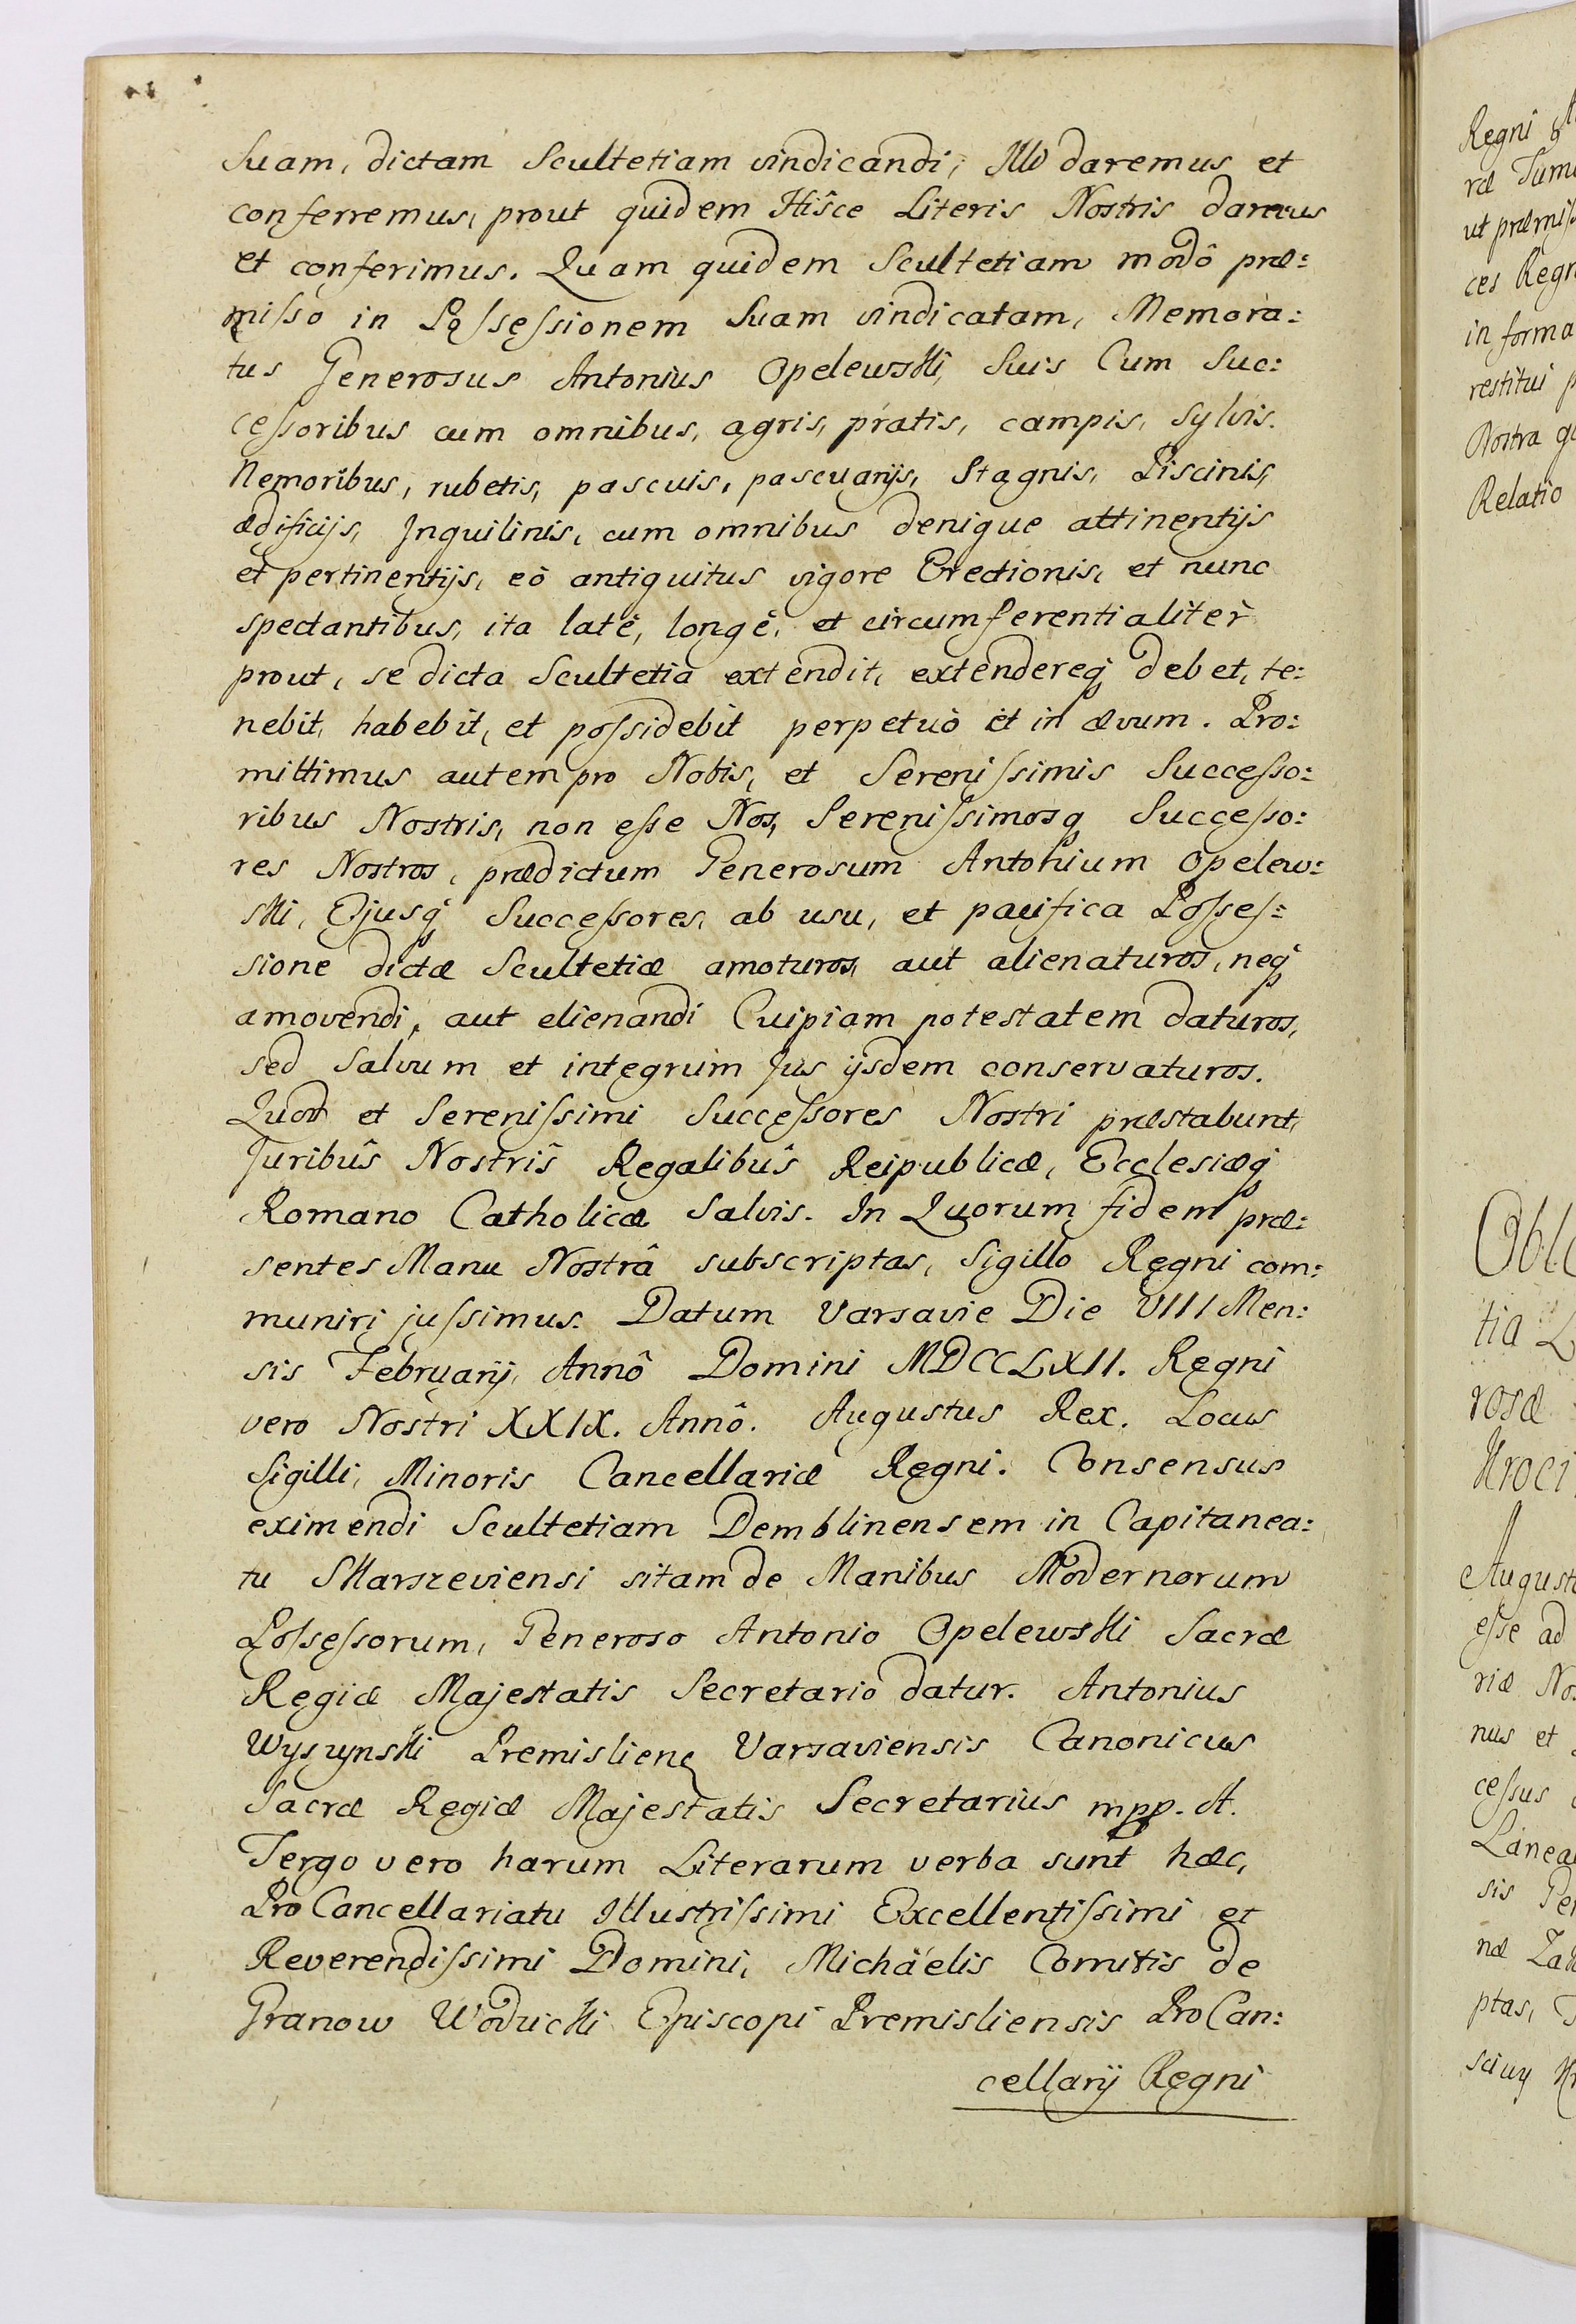 Suam, dictam Scultetiam vindicandi, Illi daremus et
conferremus, prout quidem Hisce Literis Nostris damus
et conferimus. Quam quidem Scultetiam modô præ:
misso in Possessionem Suam vindicatam, Memora:
tus Generosus Antonius Opelewski, Suis Cum Suc:
cessoribus cum omnibus, agris, pratis, campis, Sylvis.
Nemoribus, rubetis, pascuis, pascuarijs, Stagnis, Piscinis,
ædificijs, Inquilinis, cum omnibus denique attinentijs
et pertinentijs, eò antiquitus vigore Erectionis, et nunc
spectantibus, ita latè, longè, et circumferentialitèr
prout, se dicta Scultetia extendit, extendereq debet, te:
nebit, habebit, et possidebit perpetuò et in ævum. Pro:
mittimus autem pro Nobis, et Serenissimis Successo:
ribus Nostris, non esse Nos, Serenissimosq Successo:
res Nostros, prædictum Generosum Antonium Opelew:
ski, Ejusq Successores, ab usu, et pacifica Posses:
sione dictæ Scultetiæ amoturos, aut alienaturos, neq
amovendi, aut elienandi Cuipiam potestatem daturos,
sed Salvum et integrum Jus ijsdem conservaturos.
Quod et Serenissimi Successores Nostri præstabunt,
Juribûs Nostrîs Regalibûs Reipublicæ, Ecclesiæq
Romano Catholicæ Salvis. In Quorum fidem præ:
sentes Manu Nostrâ subscriptas, Sigillo Regni com:
muniri jussimus. Datum Varsavie Die VIII Men:
sis Februarij, Annô Domini MDCCLXII. Regni
vero Nostri XXIX. Annô. Augustus Rex. Locus
Sigilli, Minoris Cancellariæ Regni. Consensus
eximendi Scultetiam Demblinensem in Capitanea:
tu Skarszeviensi sitam de Manibus Modernorum
Possessorum, Generoso Antonio Opelewski Sacræ
Regiæ Majestatis Secretario datur. Antonius
Wyszynski Premislien Varsaviensis Canonicus
Sacræ Regiæ Majestatis Secretarius mpp. A.
Tergo vero harum Literarum verba sunt hæc,
ProCancellariatu Illustrissimi Excellentissimi et
Reverendissimi Domini, Michäelis Comitis de
Granow Wodzicki Episcopi Premisliensis ProCan:
cellarij Regni
Regni
ræ
ut præmiss
ces Regn
in forma
restitui
Nostra
Relatio
tia
rosæ
August
esse ad
riæ
nus et
cessus
sis
næ
ptas,